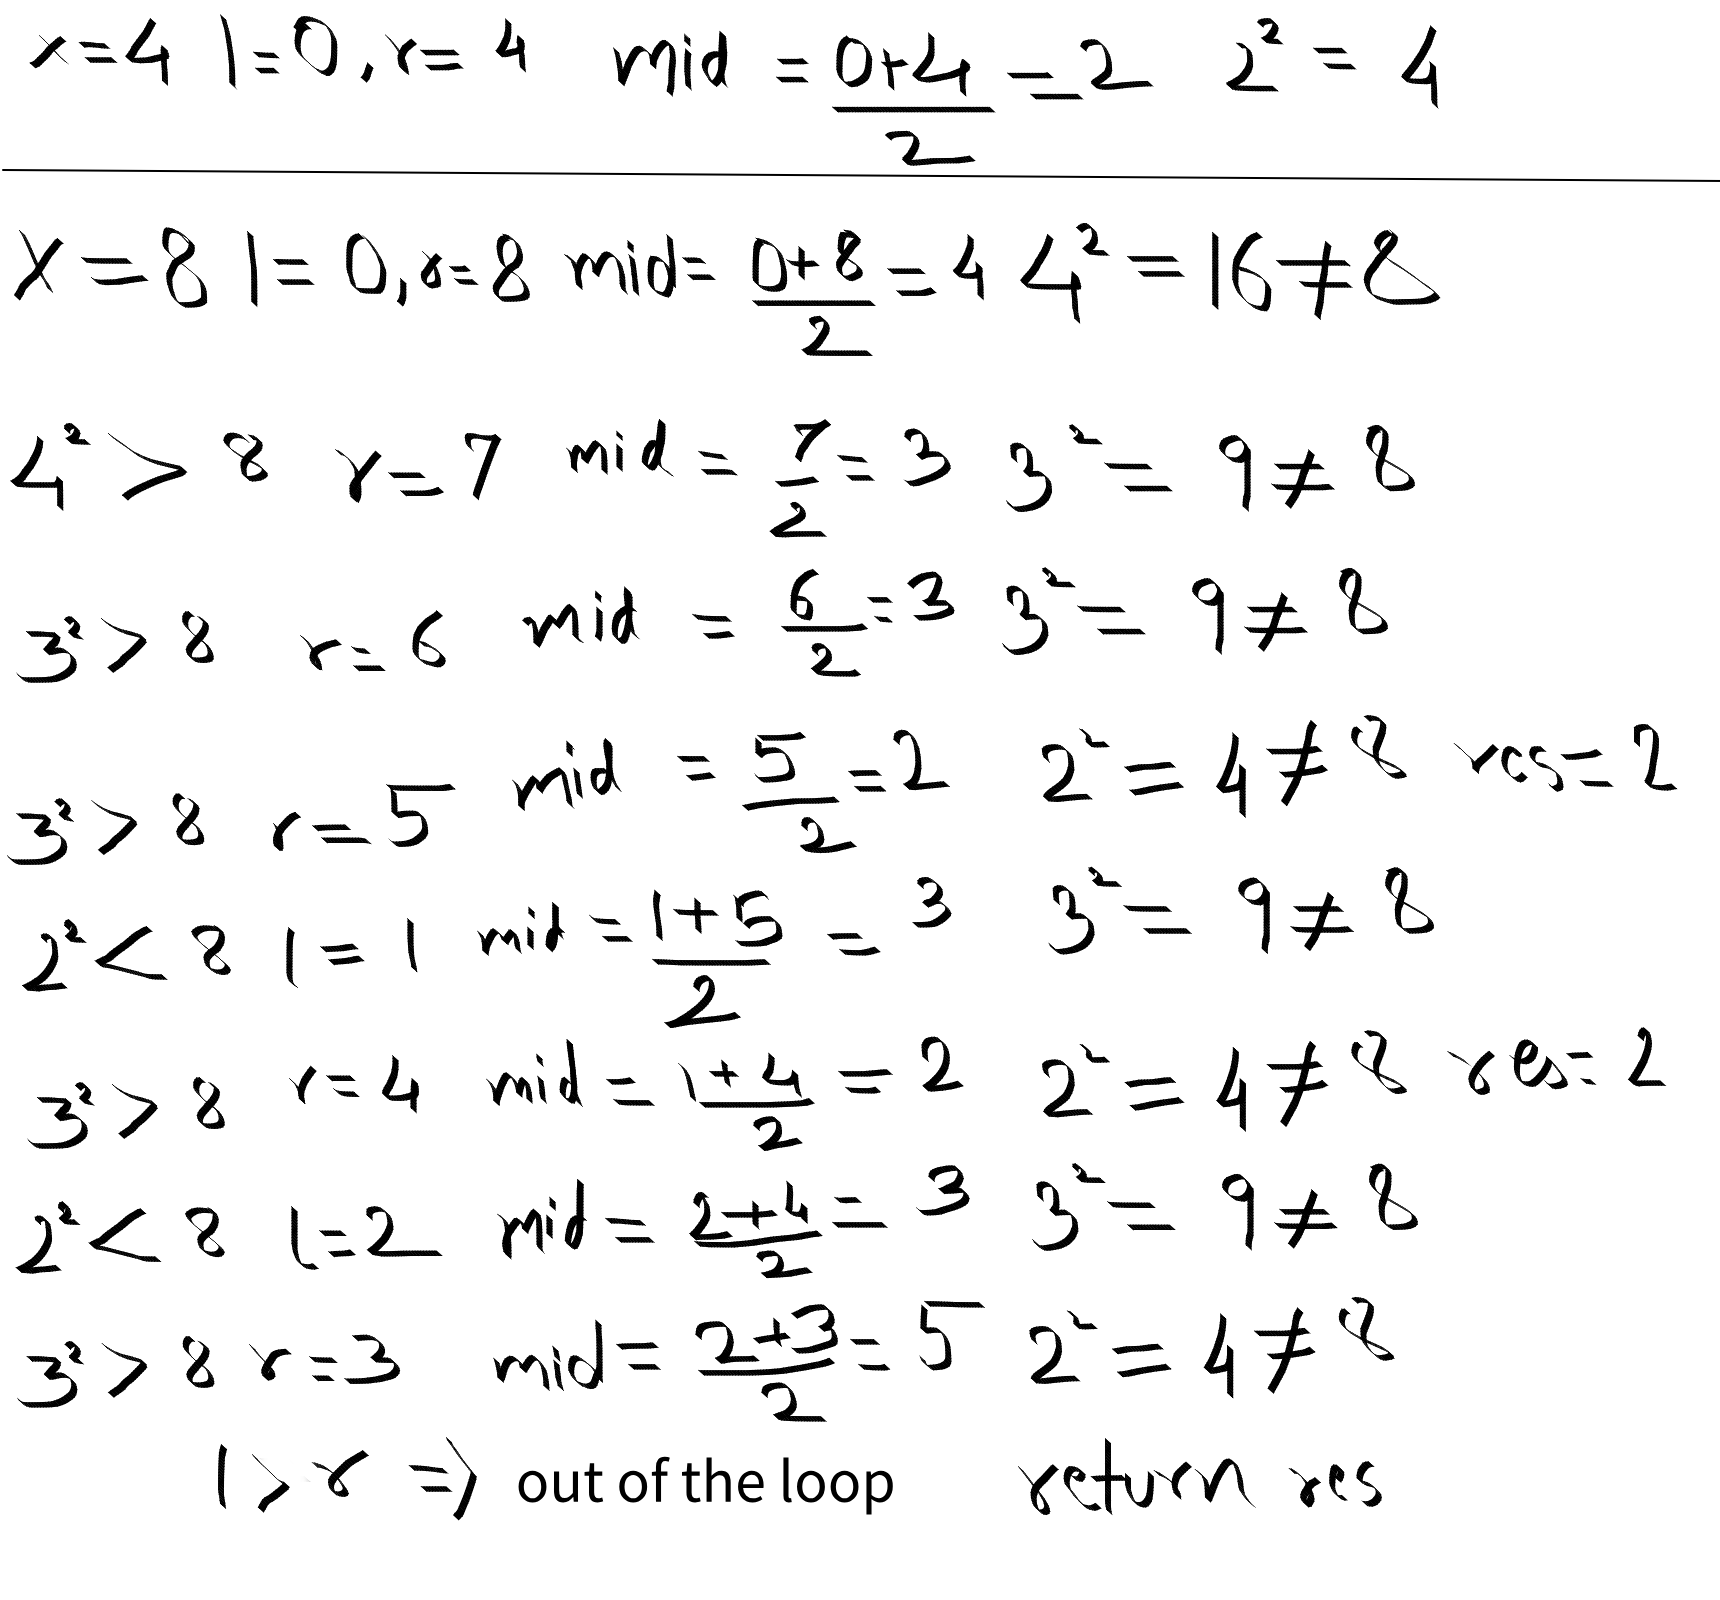 x=4 l=0, r= 4 mid = (0+4)/2 = 2 2² = 4
X=8 l= 0, r=8 mid= (0+8)/2 = 4 4² = 16≠8
4² > 8 r=7 mid = 7/2 = 3 3² = 9≠8
3² > 8 r=6 mid = 6/2 = 3 3² = 9≠8
3² > 8 r=5 mid = 5/2 = 2 2² = 4≠8 res=2
2² < 8 l=1 mid = (1+5)/2 = 3 3² = 9≠8
3² > 8 r=4 mid = (1+4)/2 = 2 2² = 4≠8 res=2
2² < 8 l=2 mid = (2+4)/2 = 3 3² = 9≠8
3² > 8 r=3 mid = (2+3)/2 = 5 2² = 4≠8
l > r => out of the loop return res